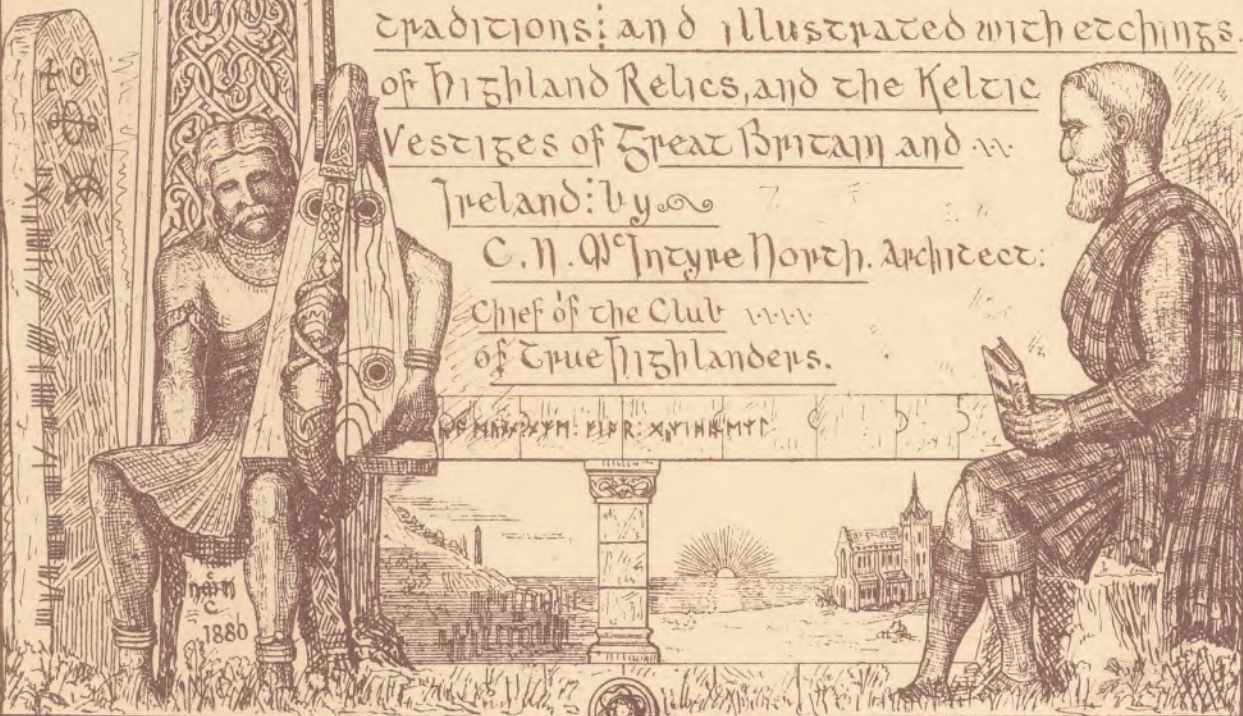 traditions: and illustrated with etchings.
of Highland Relics, and the Keltic
Vestiges of Great Britain and
Ireland: by
C. N. McIntyre North. Architect:
Chief of the Club
of True Highlanders.
1880